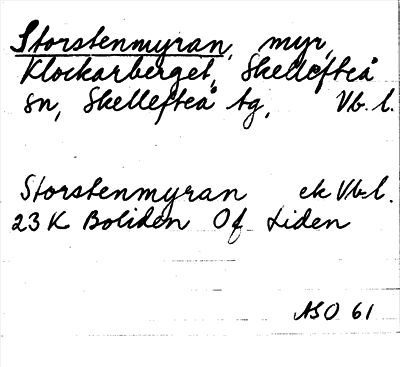 Storstenmyran, myr,
Klockarberget, Skellefteå
sn, Skellefteå tg, Vb. l.
Storstenmyran ek Vb. l.
23 K Boliden Of Liden
ASO 61